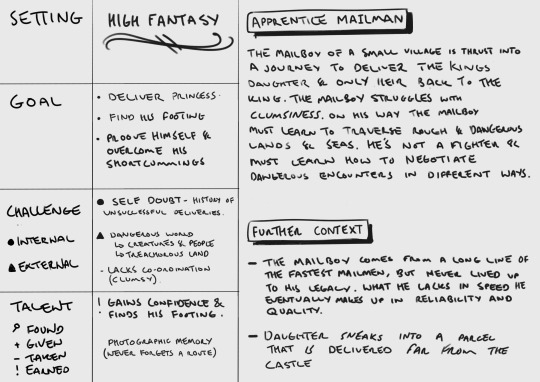 SETTING
HIGH FANTASY
GOAL
• DELIVER PRINCESS.
• FIND HIS FOOTING
• PROOVE HIMSELF &
OVERCOME HIS
SHORTCUMMINGS
CHALLENGE
● INTERNAL
▲ EXTERNAL
● SELF DOUBT - HISTORY OF
UNSUCCESSFUL DELIVERIES.
▲ DANGEROUS WORLD
↳ CREATURES & PEOPLE
↳ TREACHOROUS LAND
- LACKS CO-ORDINATION
(CLUMSY)
TALENT
? FOUND
+ GIVEN
- TAKEN
! EARNED
! GAINS CONFIDENCE &
FINDS HIS FOOTING.
PHOTOGRAPHIC MEMORY
(NEVER FORGETS A ROUTE)
APPRENTICE MAILMAN
THE MAILBOY OF A SMALL VILLAGE IS THRUST INTO
A JOURNEY TO DELIVER THE KINGS
DAUGHTER & ONLY HEIR BACK TO THE
KING. THE MAILBOY STRUGGLES WITH
CLUMSINESS. ON HIS WAY THE MAILBOY
MUST LEARN TO TRAVERSE ROUGH & DANGEROUS
LANDS & SEAS. HE'S NOT A FIGHTER &
MUST LEARN HOW TO NEGOTIATE
DANGEROUS ENCOUNTERS IN DIFFERENT WAYS.
FURTHER CONTEXT
- THE MAILBOY COMES FROM A LONG LINE OF
THE FASTEST MAILMEN, BUT NEVER LIVED UP
TO HIS LEGACY. WHAT HE LACKS IN SPEED HE
EVENTUALLY MAKES UP IN RELIABILITY AND
QUALITY.
- DAUGHTER SNEAKS INTO A PARCEL
THAT IS DELIVERED FAR FROM THE
CASTLE